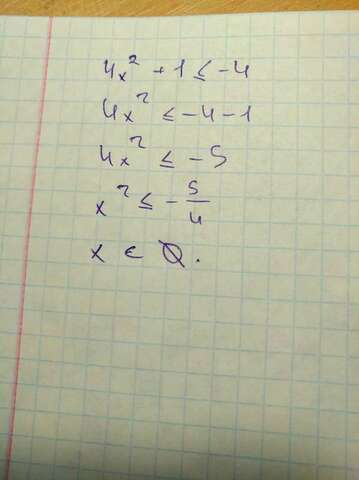 4x² + 1 ≤ -4
4x² ≤ -4 - 1
4x² ≤ -5
x² ≤ -5/4
x ∈ ∅.